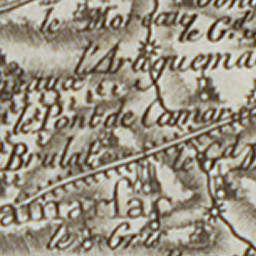 le Moreau
le Gd.
l'Artiguema
le Pont de Camar
Brulat
le Gd M
amarsac
le Gris